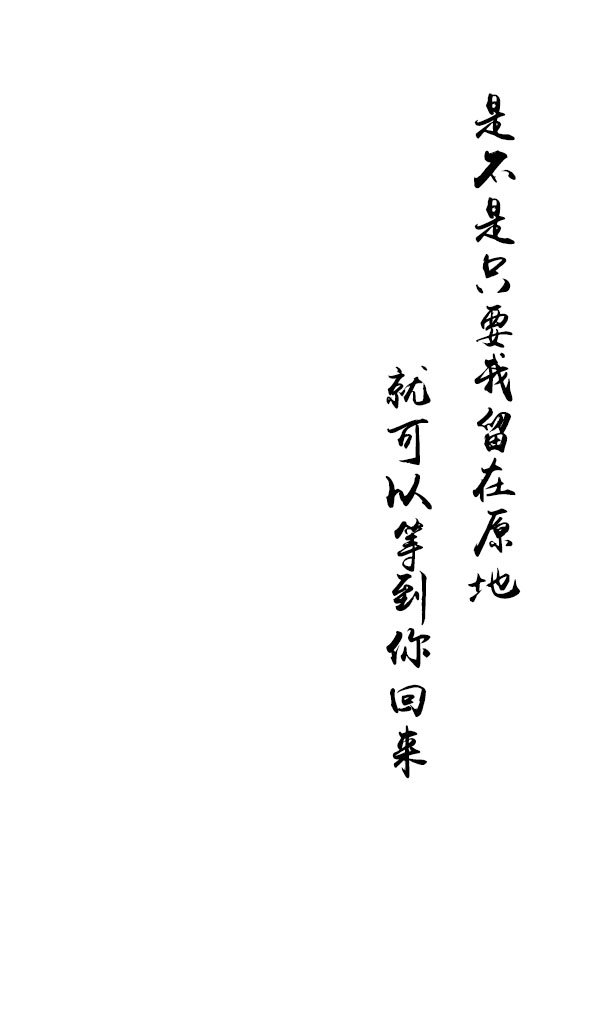 是不是只要我留在原地
就可以等到你回来